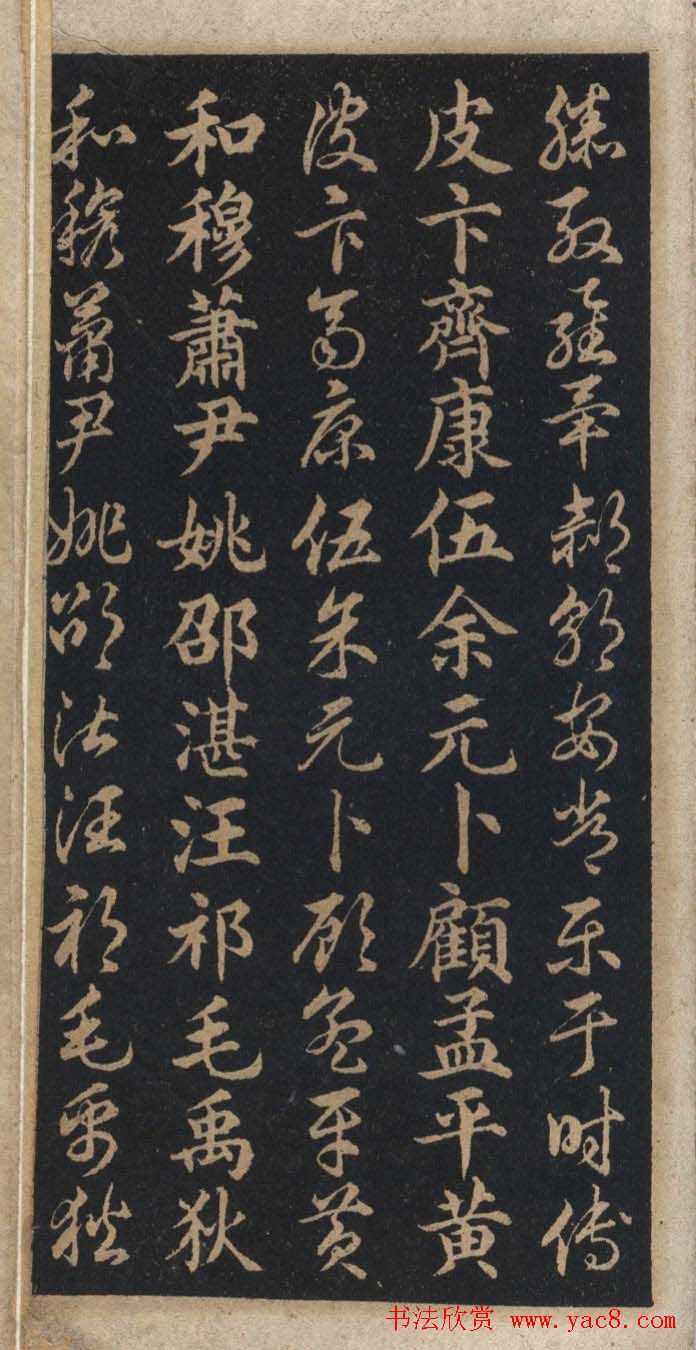 滕殷羅畢郝鄔安常樂于時傅
皮卞齊康伍余元卜顧孟平黄
皮卞齊康伍余元卜顧孟平黄
和穆蕭尹姚邵湛汪祁毛禹狄
和穆蕭尹姚邵湛汪祁毛禹狄
书法欣赏 www.yac8.com